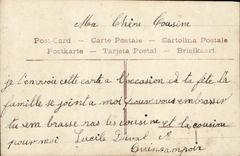 Ma Chère Cousine
Post-Card — Carte Postale — Cartolina Postale
Postkarte — Tarjeta Postal — Briefkaart
je t'envoie cette carte a l'occasion de ta fête la
famille se joint a moi pour vous embrasser
tu embrasseras les cousins et la cousine
pour moi Lucile Duval